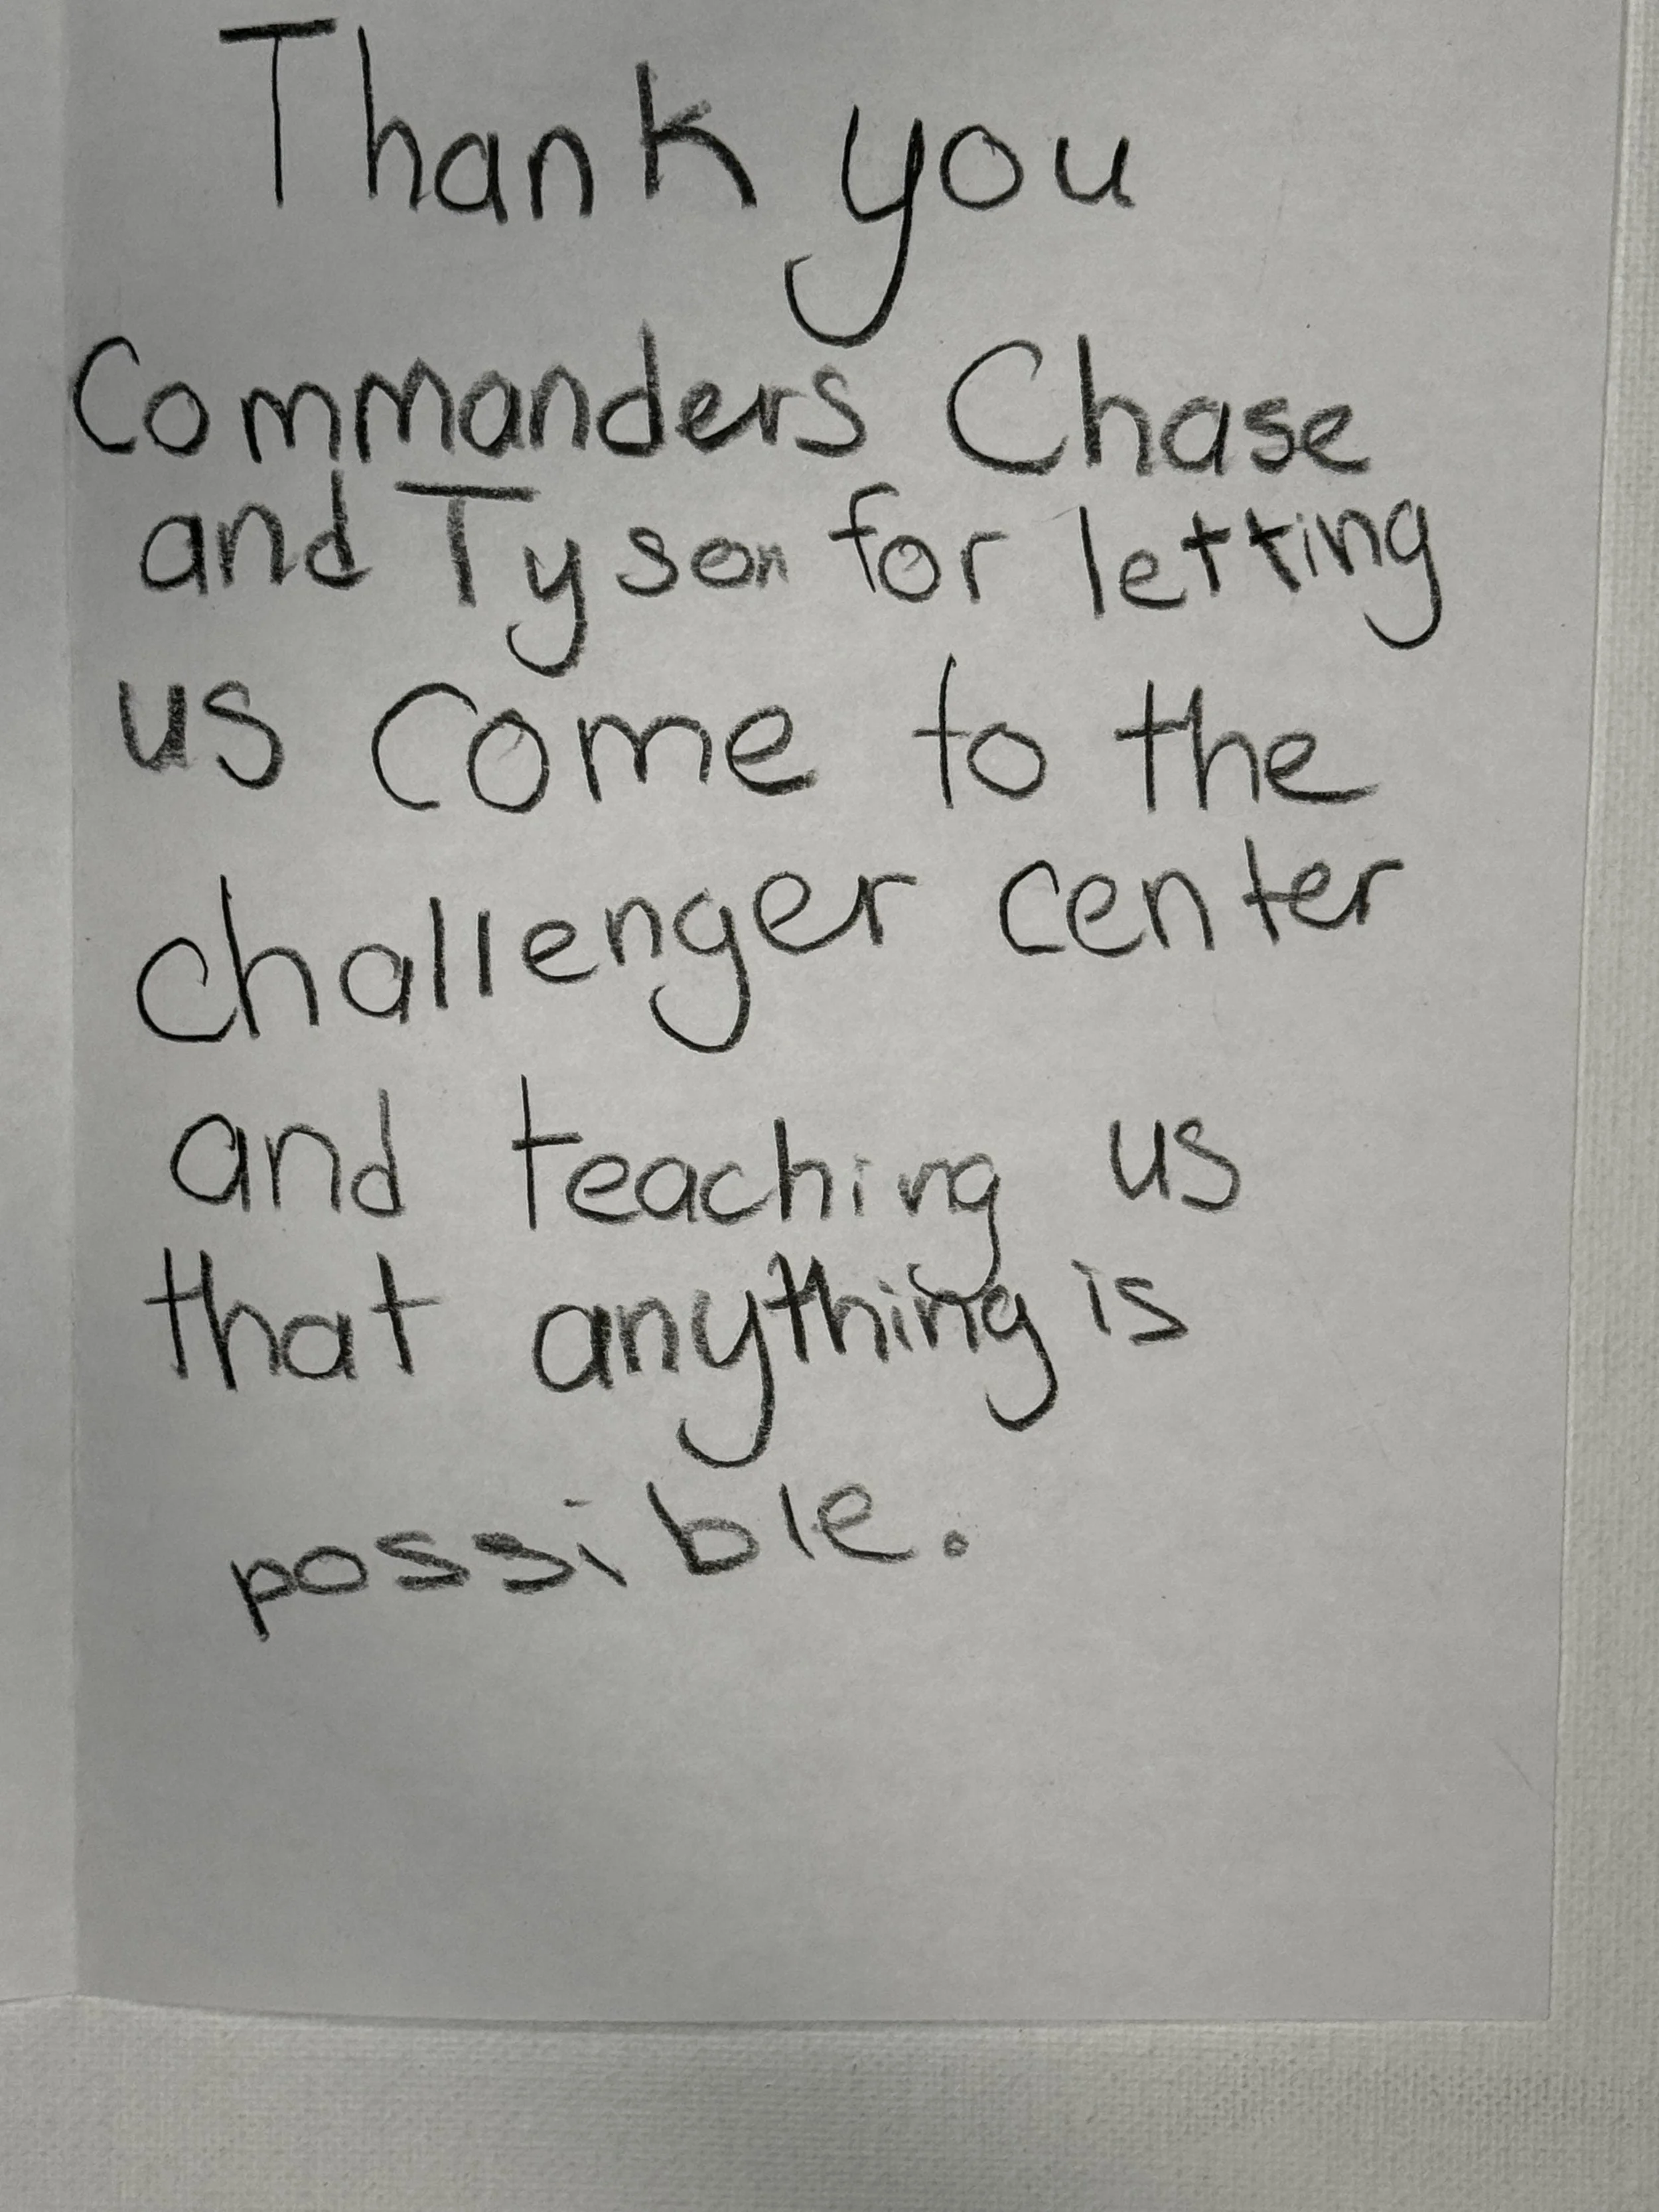 Thank you
Commanders Chase
and Tyson for letting
us come to the
challenger center
and teaching us
that anything is
possible.